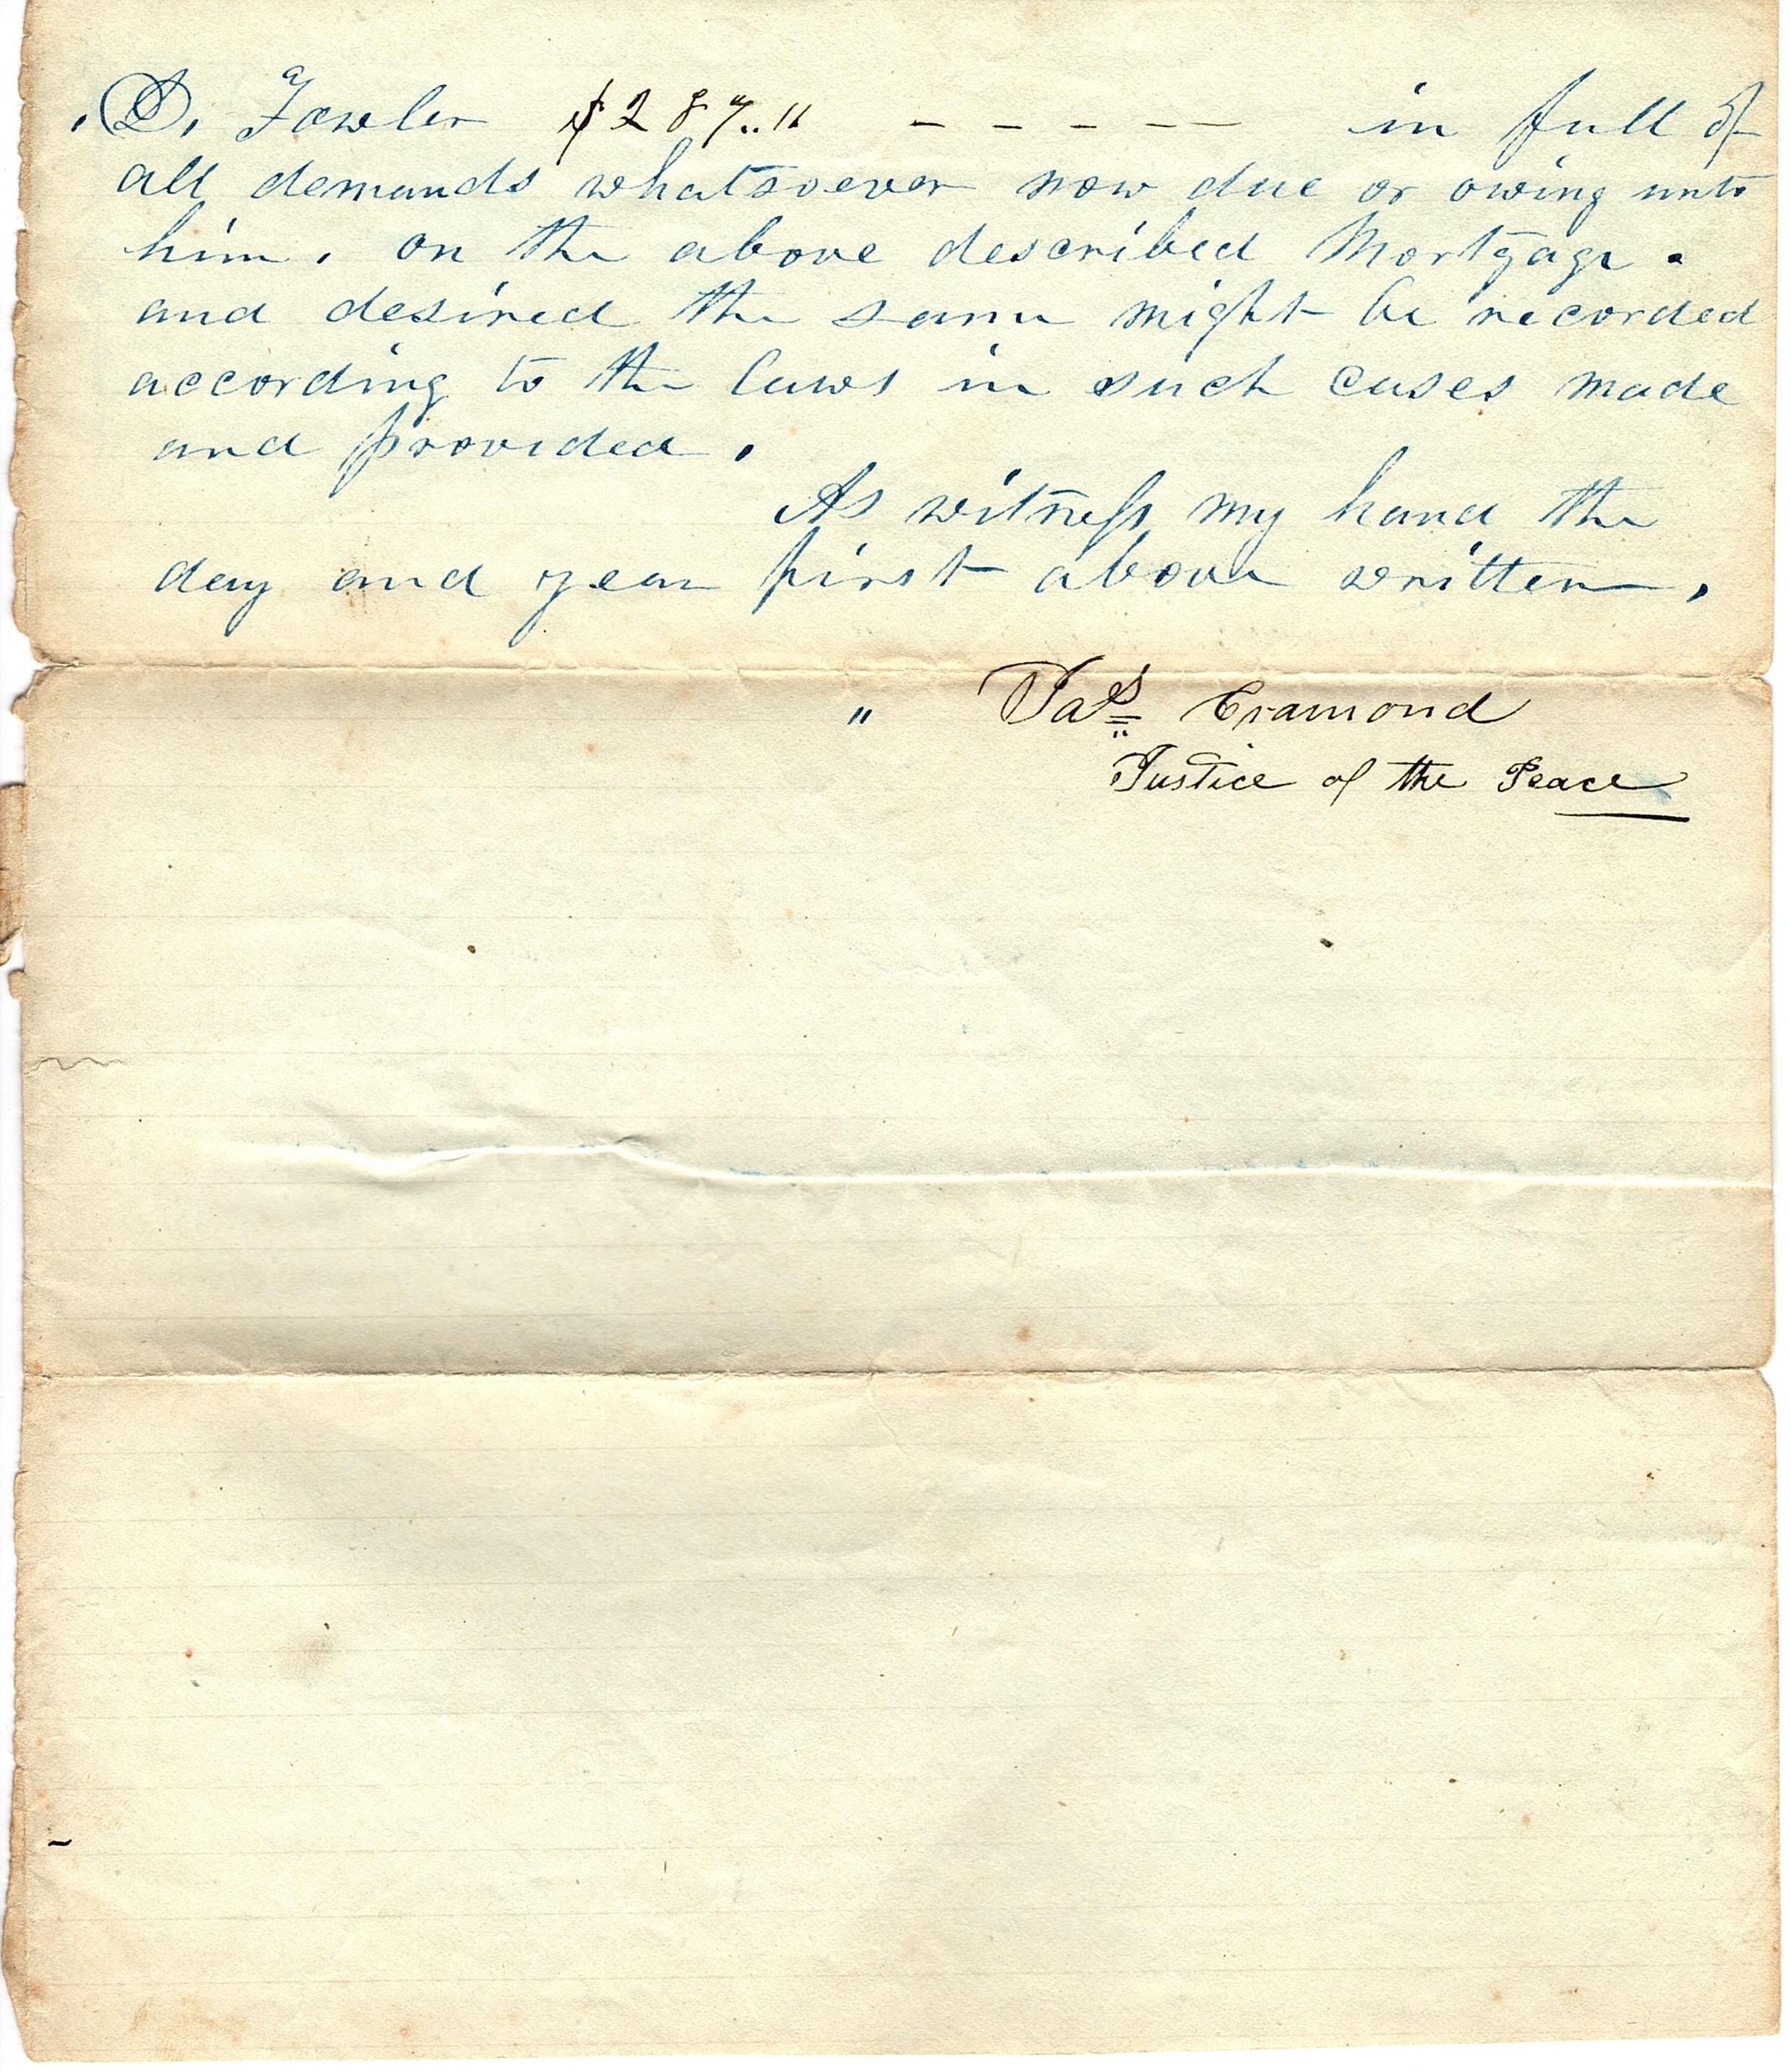 D. Fowler $287..11 - - - - — in full of
all demands whatsoever now due or owing unto
him. on the above described Mortgage.
and desired the same might be recorded
according to the laws in such cases made
and provided.
As witness my hand the
day and year first above written.
" Jas Cramond
Justice of the Peace